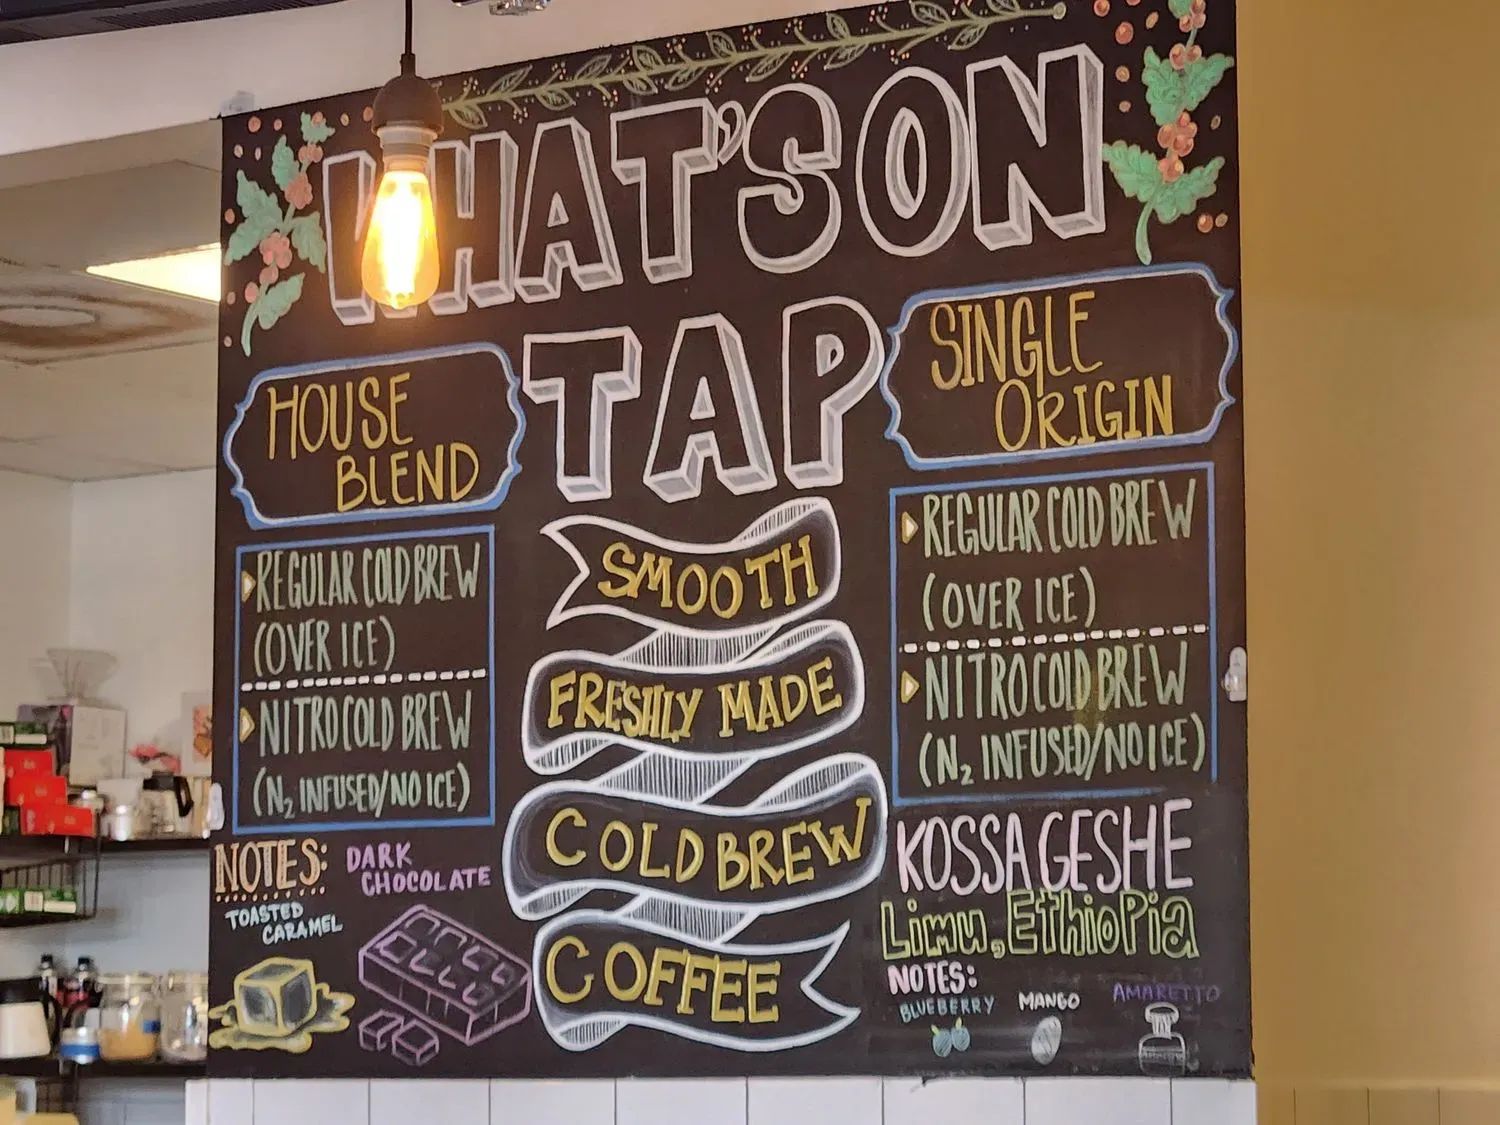 WHAT'S ON
TAP
HOUSE
BLEND
REGULAR COLD BREW
(OVER ICE)
NITRO COLD BREW
(N₂ INFUSED/NO ICE)
NOTES:
DARK
CHOCOLATE
TOASTED
CARAMEL
SMOOTH
FRESHLY MADE
COLD BREW
COFFEE
SINGLE
ORIGIN
REGULAR COLD BREW
(OVER ICE)
NITRO COLD BREW
(N₂ INFUSED/NO ICE)
KOSSA GESHE
Limu, EthioPia
NOTES:
BLUEBERRY
MANGO
AMARETTO